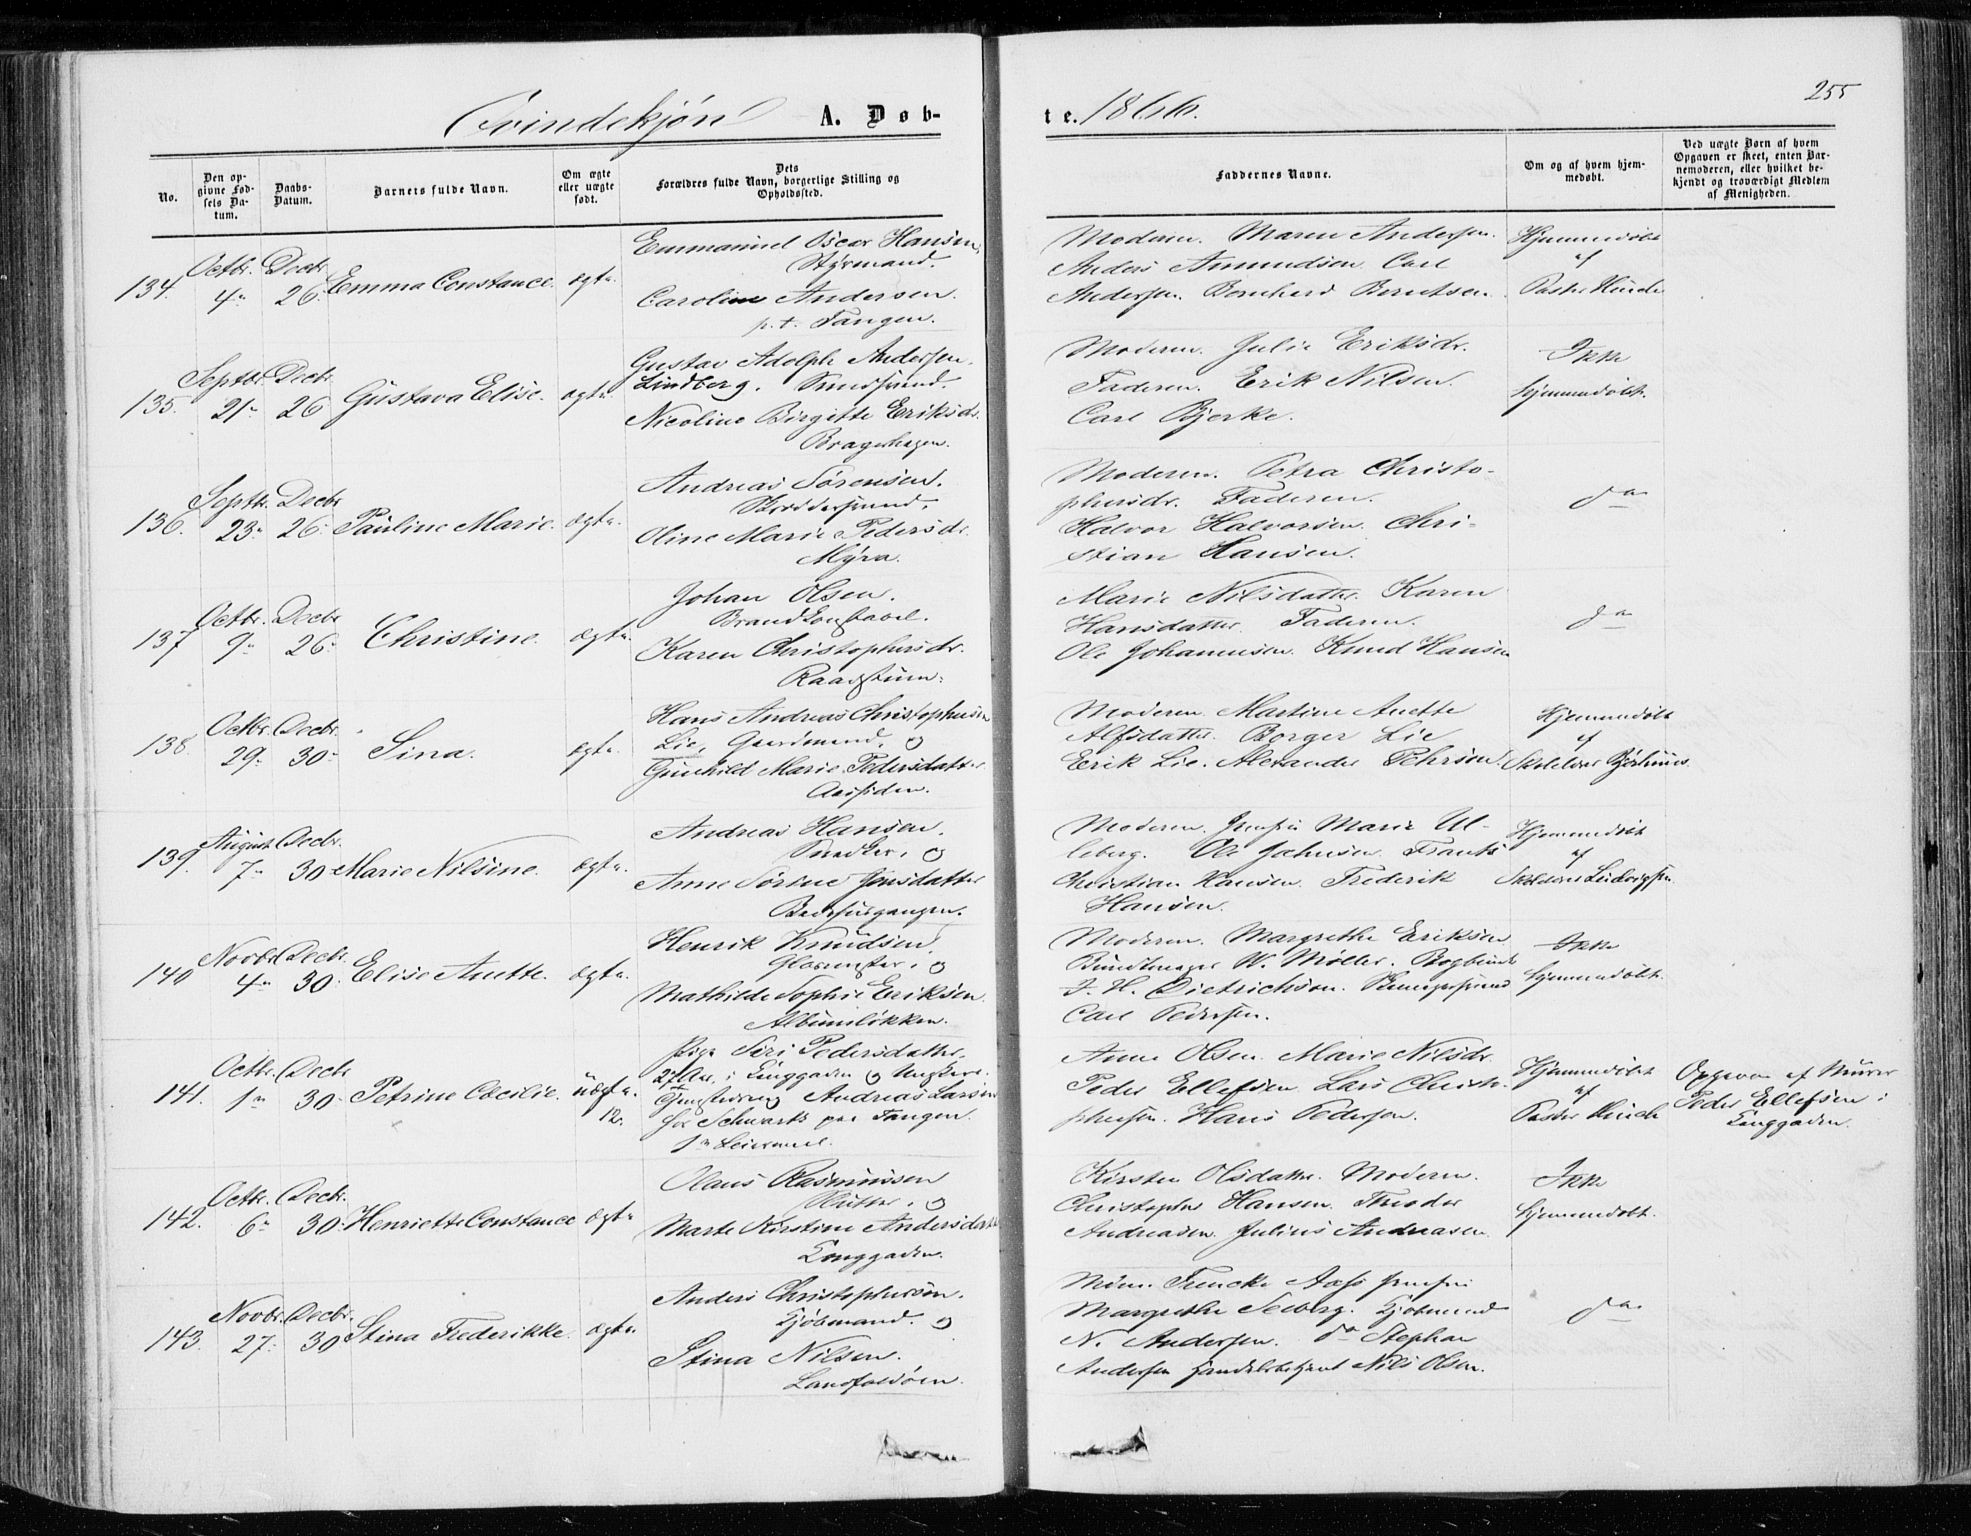 255
Qvindekjøn A. Døb-
te. 1866.
No.
Den op-
givne Fød-
sels Da-
tum.
Daabs-
Datum.
Barnets fulde Navn.
Om ægte
eller uægte
født.
Dets
Forældres fulde Navn, borgerlige Stilling og
Opholdssted.
Faddernes Navne.
Om og af hvem hjem-
medøbt.
Ved uægte Børn af hvem
Opgaven er skeet, enten Bar-
nemoderen, eller hvilket be-
kjendt og troværdigt Medlem
af Menigheden.
134. Octbr. 4 Decbr 26. Emma Constance. ægte.
Emmanuel Oscar Hansen,
Styrmand.
Caroline Andersen.
p. t. Tangen.
Moderen. Maren Andersen.
Anders Amundsen. Carl
Andersen. Bernhard Berntsen.
Hjemmedøbt
af
Pastor Hinch
135. Septbr. 21 Decbr 26 Gustava Elise. ægte.
Gustav Adolph Andersen
Lindberg.
Nicoline Birgitte Eriksdr.
Bragerhagen.
Moderen. Julie Eriksdr.
Faderen. Erik Nilsen.
Carl Bjerke.
Ikke
hjemmedøbt.
136. Septbr. 23 Decbr 26 Pauline Marie. ægte.
Andreas Sørensen.
Oline Marie Pedersdr.
Myra.
Moderen. Petra Christo-
phersdr. Faderen.
Halvor Halvorsen. Chri-
stian Hansen.
do
137 Octbr. 9 Decbr 26 Christine. ægte.
Johan Olsen.
Brandkonstabel.
Karen Christophersdr.
Raadstuen.
Marie Nilsdatter. Karen
Hansdatter. Faderen.
Ole Johannesen. Knud Hansen
do
138. Octbr. 29 Decbr. 30 Sina. ægte.
Hans Andreas Christophersen
Lie, Gaardmand. og
Gunhild Marie Pedersdatter
Aassiden.
Moderen. Martine Anette
Alfsdatter. Borger Lie
Erik Lie. Alexander Pehrson.
Hjemmedøbt
af
139. August 7 Decbr. 30 Marie Nilsine. ægte.
Andreas Hansen.
Snedker. og
Anne Sørine Jensdatter
Moderen. Jomfru Marie Ul-
leberg. Ole Johnsen. Frants
Christian Hansen. Frederik
Hansen.
Hjemmedøbt
af
140 Novbr. 4 Decbr. 30. Elise Anette. ægte.
Henrik Knudsen,
Glasmester. og
Mathilde Sophie Eriksen.
Albumsløkken.
Moderen. Margrethe Eriksen
Bundtmager W. Møller. Bogbind.
J. H. Dietrichson.
Carl Pedersen.
Ikke
hjemmedøbt.
141. Octbr. 1 Decbr 30 Petrine Cæcilie. uægte.
12.
Pige Siri Pedersdatter.
27 Aar. i Langgaden og Ungkarl.
Tjenestedreng Andreas Larsen
hos Schwartz paa Tangen.
1ste Leiermaal.
Anne Olsen. Marie Nilsdr.
Peder Ellefsen. Lars Christo-
phersen. Hans Pedersen.
Hjemmedøbt
af
Pastor Hinch
Opgaven af Murer
Peder Ellefsen i
Langgaden.
142. Octbr. 6 Decbr. 30. Henriette Constance ægte
Olaus Rasmussen
og
Marte Kirstine Andersdatter
Langgaden.
Kirsten Olsdatter. Moderen.
Christopher Hansen. Theodor
Andreasen. Julius Andreasen.
Ikke
hjemmedøbt.
143. Novbr. 27. Decbr. 30 Stina Frederikke. ægte.
Anders Christophersen.
Kjøbmand. og
Stina Nilsen.
Landfaldøen.
Margrethe Seeberg. Kjøbmand
N. Andersen. do Stephan
Andersen Handelsbetjent Nils Olsen.
do